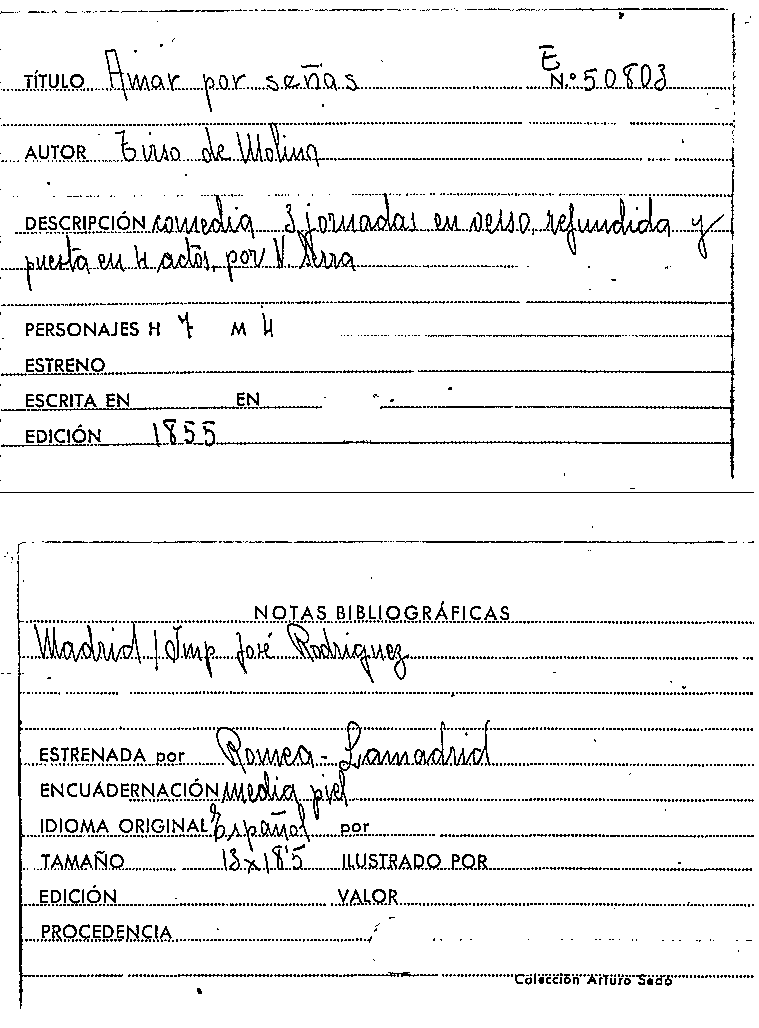 E
TÍTULO Amar por señas N.º 50803
AUTOR Tirso de Molina
DESCRIPCIÓN comedia 3 jornadas en verso, refundida y
puesta en 4 actos, por V.
PERSONAJES H 7 M 4
ESTRENO
ESCRITA EN EN
EDICIÓN 1855
NOTAS BIBLIOGRÁFICAS
Madrid / Imp José Rodriguez
ESTRENADA por Romea - Lamadrid
ENCUADERNACIÓN media piel
IDIOMA ORIGINAL Español por
TAMAÑO 13x18'5 ILUSTRADO POR
EDICIÓN VALOR
PROCEDENCIA
Colección Arturo Sedó